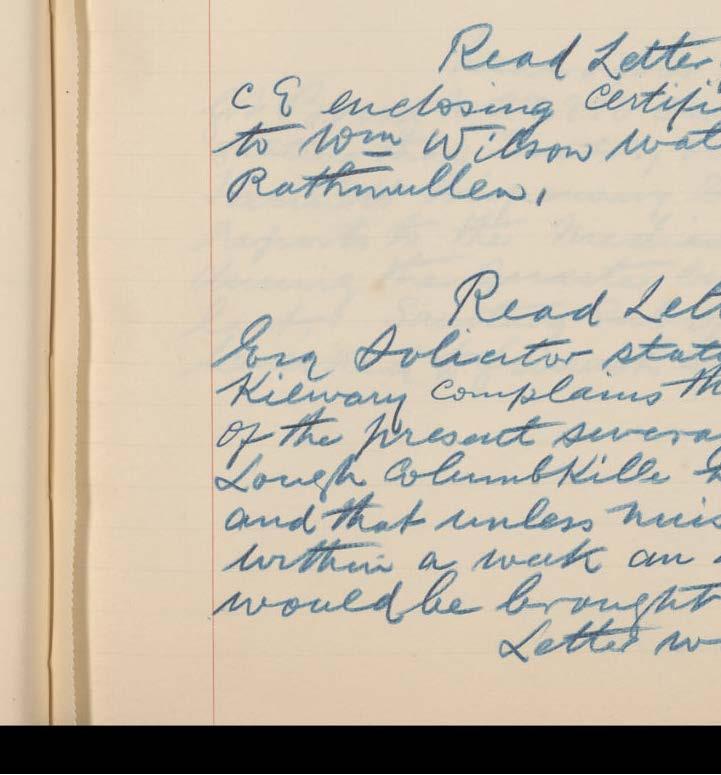 Read Letter
C E enclosing Certifi
to Wm Wilson Wat
Rathmullen,
Read Lett
Esq Solicitor stat
Kilwary Complains th
of the present severa
Lough ColumbKille h
and that unless nuis
within a week an
would be brought
Letter w